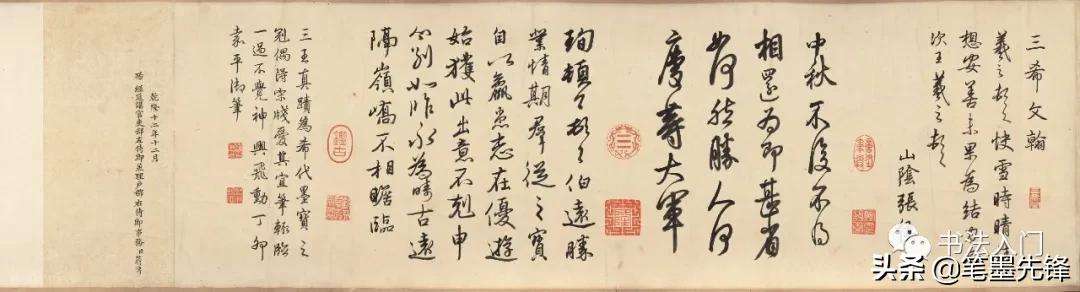 三希文翰
羲之頓首快雪時晴
想安善未果為結
次王羲之頓首
山陰張
中秋不復不得
相還為即甚省
如何然勝人何
慶等大軍
珣頓首頓首伯遠勝
業情期羣從之寶
自以羸患志在優遊
始獲此出意不剋申
分別如昨永為疇古遠
隔嶺嶠不相瞻臨
三王真蹟為希代墨寶之
冠偶得宋牋愛其宜筆輒臨
一過不覺神興飛動丁卯
嘉平御筆
鑑古
乾隆十二年十二月
賜經筵講官吏部左侍郎兼理戶部右侍郎事務臣蔣溥
书法入门
头条@笔墨先锋